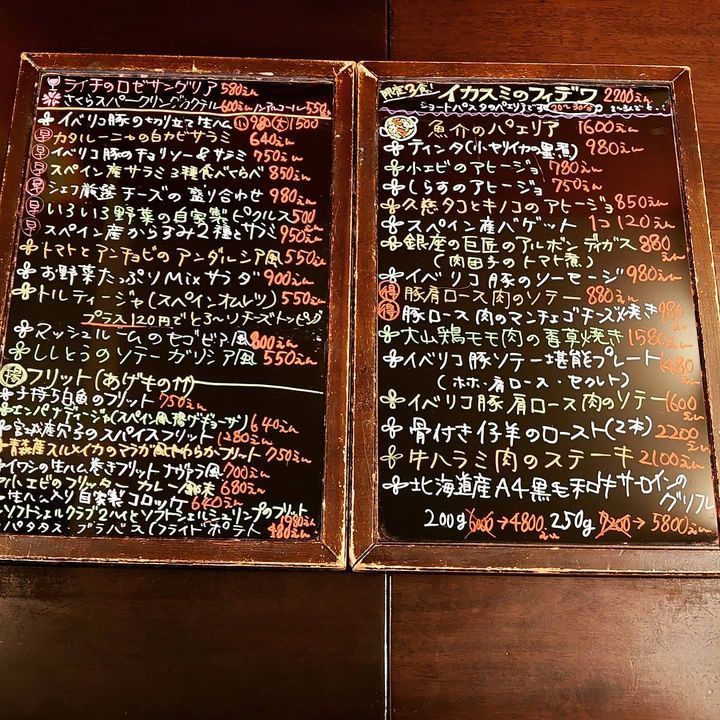 ライチのロゼサングリア 580えん
さくらスパークリングカクテル 600えん ノンアルコール 550
イベリコ豚の切り立て生ハム 小 980 大 1500
早 カタルーニャの白カビサラミ 640えん
早 イベリコ豚のチョリソー&サラミ 750えん
早 スペイン産サラミ3種食べくらべ 850えん
早 シェフ厳選チーズの盛り合わせ 980えん
早 いろいろ野菜の自家製ピクルス 500えん
早 スペイン産からすみ2種とサラミ 950えん
トマトとアンチョビのアンダルシア風 550えん
お野菜たっぷりMixサラダ 900えん
トルティージャ(スペインオムレツ) 550えん
プラス120円でとろ〜りチーズトッピング
マッシュルームのセゴビア風 800えん
ししとうのソテー ガリシア風 550えん
得 フリット(あげもの)
子持ち白魚のフリット 750えん
エンパナディージャ(スペイン風揚げギョーザ) 640えん
宮城産穴子のスパイスフリット 1280えん
青森産スルメイカのマラガ風やわらかフリット 750えん
イワシの生ハム巻きフリット ナヴァラ風 700えん
小エビのフリッター カレー風味 680えん
生ハム入り自家製コロッケ 640えん
ソフトシェルクラブ2ハイとソフトシェルシュリンプのフリット 1980えん
パタタス・ブラバス(フライドポテト 480えん
限定3食! イカスミのフィデワ 2200えん
ショートパスタのパエリアです 20〜30分
魚介のパエリア 1600えん
ティンタ(小ヤリイカの墨煮) 980えん
小エビのアヒージョ 780えん
しらすのアヒージョ 750えん
久慈タコとキノコのアヒージョ 850えん
スペイン産バゲット 1コ 120えん
銀座の巨匠のアルボンディガス 880えん
(肉団子のトマト煮)
イベリコ豚のソーセージ 980えん
得 豚肩ロース肉のソテー 880えん
得 豚ロース肉のマンチェゴチーズ焼き 980えん
大山鶏モモ肉の香草焼き 1580えん
イベリコ豚ソテー堪能プレート 1480えん
(ホホ・肩ロース・セクレト)
イベリコ豚肩ロース肉のソテー 1600えん
骨付き仔羊のロースト(2本) 2200えん
牛ハラミ肉のステーキ 2100えん
北海道産A4黒毛和牛サーロインのグリル
200g 6000→4800えん 250g 7200→5800えん